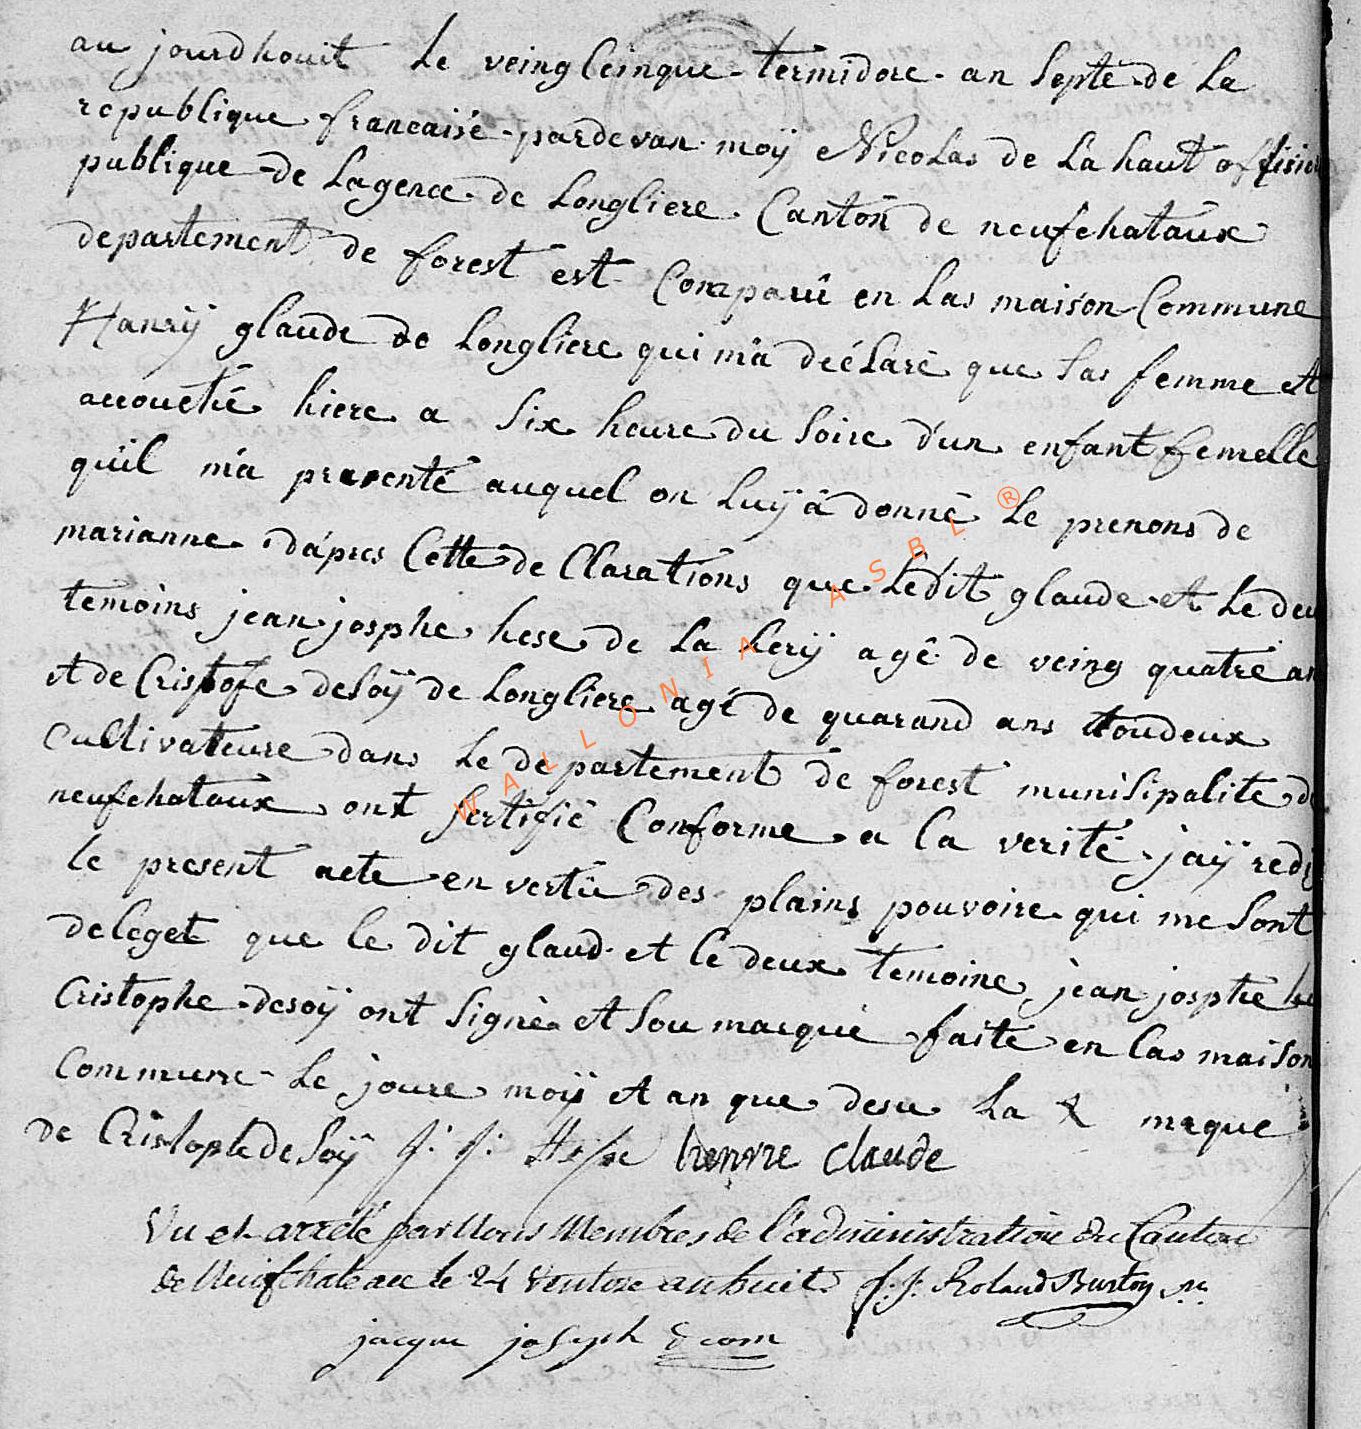 au jourdhouit Le veing Ceinque termidore an Septe de La
republique francaise pardevan moÿ Nicolas de La haut offisier
publique de Lagence de Longliere Canton de neufchataux
departement de forest est Comparû en Las maison Commune
Hanrÿ glaude de Longliere qui m'a déclaré que Sas femme et
accouchè hiere a Six heure du Soire d'un enfant femelle
quil m'a presenté auquel on Luÿ â donné Le prenons de
marianne d'apres Cette de Clarations que Ledit glaude et Le deu
temoins jean josphe hese de La Lerÿ agê de veing quatre an
et de Cristofe desoÿ de Longliere agé de quarand ans toudeux
Cultivateure dans Le departement de forest munisipalite de
neufchataux ont Sertifié Conforme a la verité jaÿ redi
le present acte en vertû des plains pouvoire qui me Sont
deleget que le dit glaud et le deux temoine jean josphe he
Cristophe desoÿ ont Signé et Sou marqué faite en Las maison
Commune Le joure moÿ et an que desu La X marque
de Cristophe de Soÿ J: J: Hesse henrre claude
Vu et arrêté par Nous Membres de l'administration du Canton
de Neufchateau le 24 Ventose an huit J. J. Roland Burton
jacque joseph
WALLONIA ASBL ®